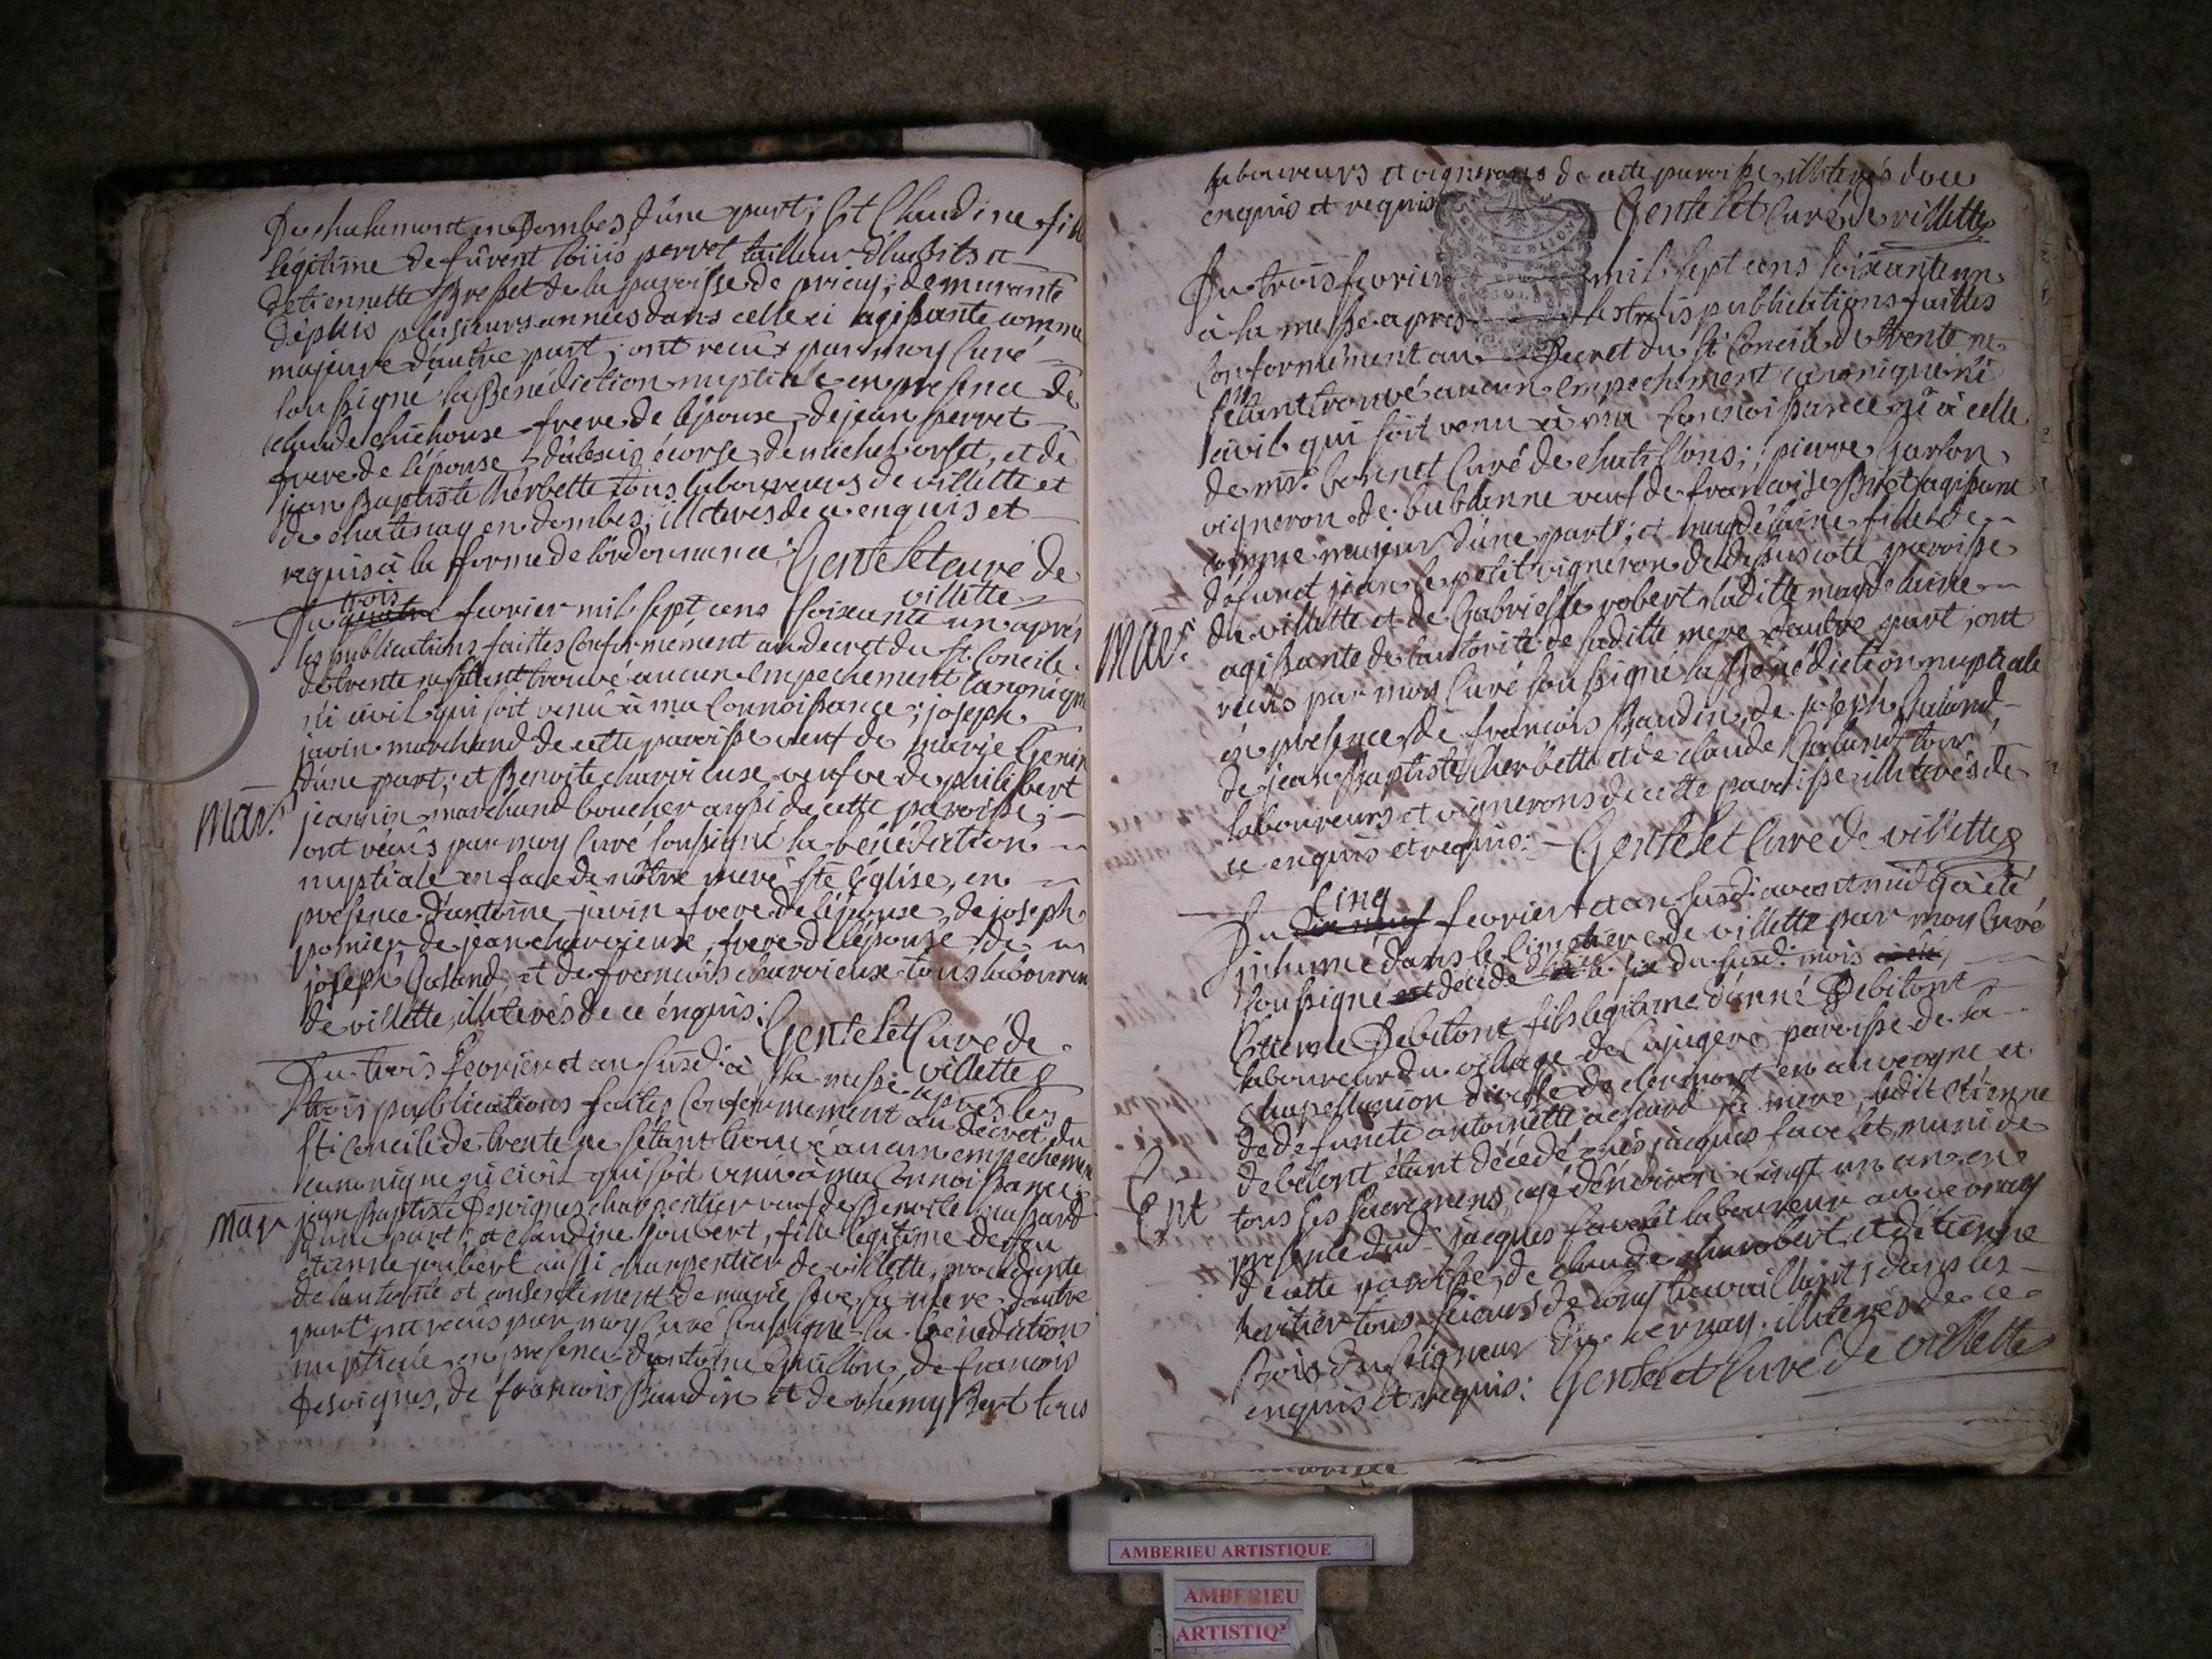 De chalamont en Dombes d'une part; Et Claudine fill
légitime de fûrent loüis perret tailleur d'habits et
d'etiennette Bresset de la paroisse de priay, demeurante
depuis plusieurs années dans celle ci agissante comme
majeure d'autre part; ont recus par moy Curé
soussigné la Bénédiction nuptiale en presence de
claude chichouse frere de l'épouse, de jean perret
frere de l'épouse, d'alexis écorse, de michel orset, et de
jean Baptiste Cherbette tous laboureurs de villette et
de chatenay en dombes, illiterés de ce enquis et
requis à la forme de l'ordonnance: Gentelet curé de
villette
trois
Du quatre fevrier mil sept cens soixante un après
les publications faittes Conformement au decret du St. Concile
de trente ne s'étant trouvé aucun empechement Canoniqu
ni civil qui soit venu à ma Connoissance; joseph
javin marchand de cette paroisse veuf de marie Genin
d'une part; et Benoite charvieuse veufve de philibert
jeannin marchand boucher aussi de cette paroisse;
Mar.
ont récûs par moy Curé soussigné la bénédiction
nuptiale en face de nôtre mere Ste Eglise, en
presence d'antoine javin frere de l'épouse, de joseph
pomier de jean charvieuse, frere de l'épouse de
joseph Galand, et de francois charvieuse tous laboureu
de villette, illiterés de ce énquis: Gentelet Curé de
villette
Du trois fevrier et an susd. à la messe après les
trois publications faites Conformement au decret du
St. Concile de trente ne s'étant trouvé aucun empechemen
canonique ni civil qui soit venu à ma Connoissance;
mar
jean Baptiste Desvignes charpentier veuf de Benoite
d'une part; et claudine joubert, fille légitime de feu
etienne joubert aussi charpentier de villette, procedante
de l'autorité et consentement de marie seve sa mere d'autre
part, ont recus par moy Curé soussigné la bénédiction
nuptiale en presence d'antoine Guillon, de francois
Desvignes, de francois Baudin et de rhemy Bert tous
laboureurs et vignerons de cette paroisse, illiterés de ce
enquis et requis Gentelet Curé de villette
Du trois fevrier mil sept cens soixante un
à la messe apres les trois publications faittes
Conformément au Decret du St. Concile de trente ne
s'étant trouvé aucun empechement canonique ni
civil qui soit venu à ma Connoissance ni à celle
de mr. Curé de chatillons; pierre Carlon
vigneron de bublanne veuf de francoise Bret agissant
comme majeur d'une part; et magdelaine fille de
défunct jean le petit vigneron de dessus cote paroisse
de villette et de Gabrielle robert, laditte magdelaine
Mar.
agissante de l'autorité de saditte mere d'autre part; ont
récûs par moy Curé soussigné la Bénédiction nuptiale
én presence de francois Baudin, de joseph Galand
de jean Baptiste Cherbette et de claude Galand tous
laboureurs et vignerons de cette paroisse illiterés de
ce enquis et requis: Gentelet Curé de villette
Cinq
Du dix neuf fevrier et an susd. avant midy à été
inhumé dans le Cimetiere de villette par moy Curé
soussigné et décédé du susd. mois
Etienne Debitont fils légitime d'anné Debitont
laboureur du village de Cujugere paroisse de la
Chapellanion diocese de clermont en auvergne et
de défuncte antoinette achard sa mere, ledit etienne
debitont étant décédé chés jacques favelet, muni de
Ent
tous les sacremens, agé d'environ vingt un an en
presence dud. jacques favelet laboureur au vevray
de cette paroisse, de claude chambert, et d'etienne
heritier tous scieurs de long travaillants dans les
Bois du seigneur du vernay, illiterés de ce
enquis et requis: Gentelet Curé de villette
AMBERIEU ARTISTIQUE
AMBERIEU
ARTISTIQ